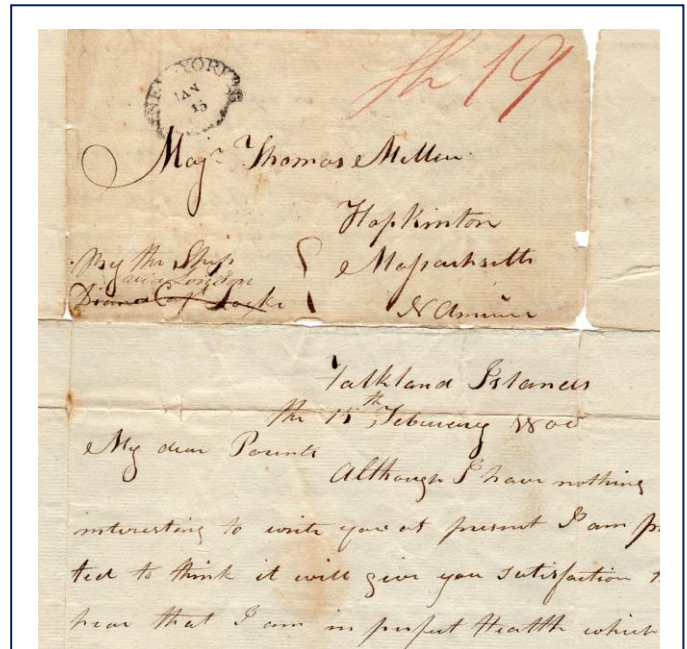 NEW YORK
JAN
15
Sh 19
Majr Thomas Mellen
Hopkinton
Massachsetts
N America
By the Ship
via London
Diana Capt Locke
Falkland Islands
the 15th February 1800
My dear Parents
Although I have nothing
interesting to write you at present I am
ted to think it will give you satisfaction
hear that I am in perfect Health which